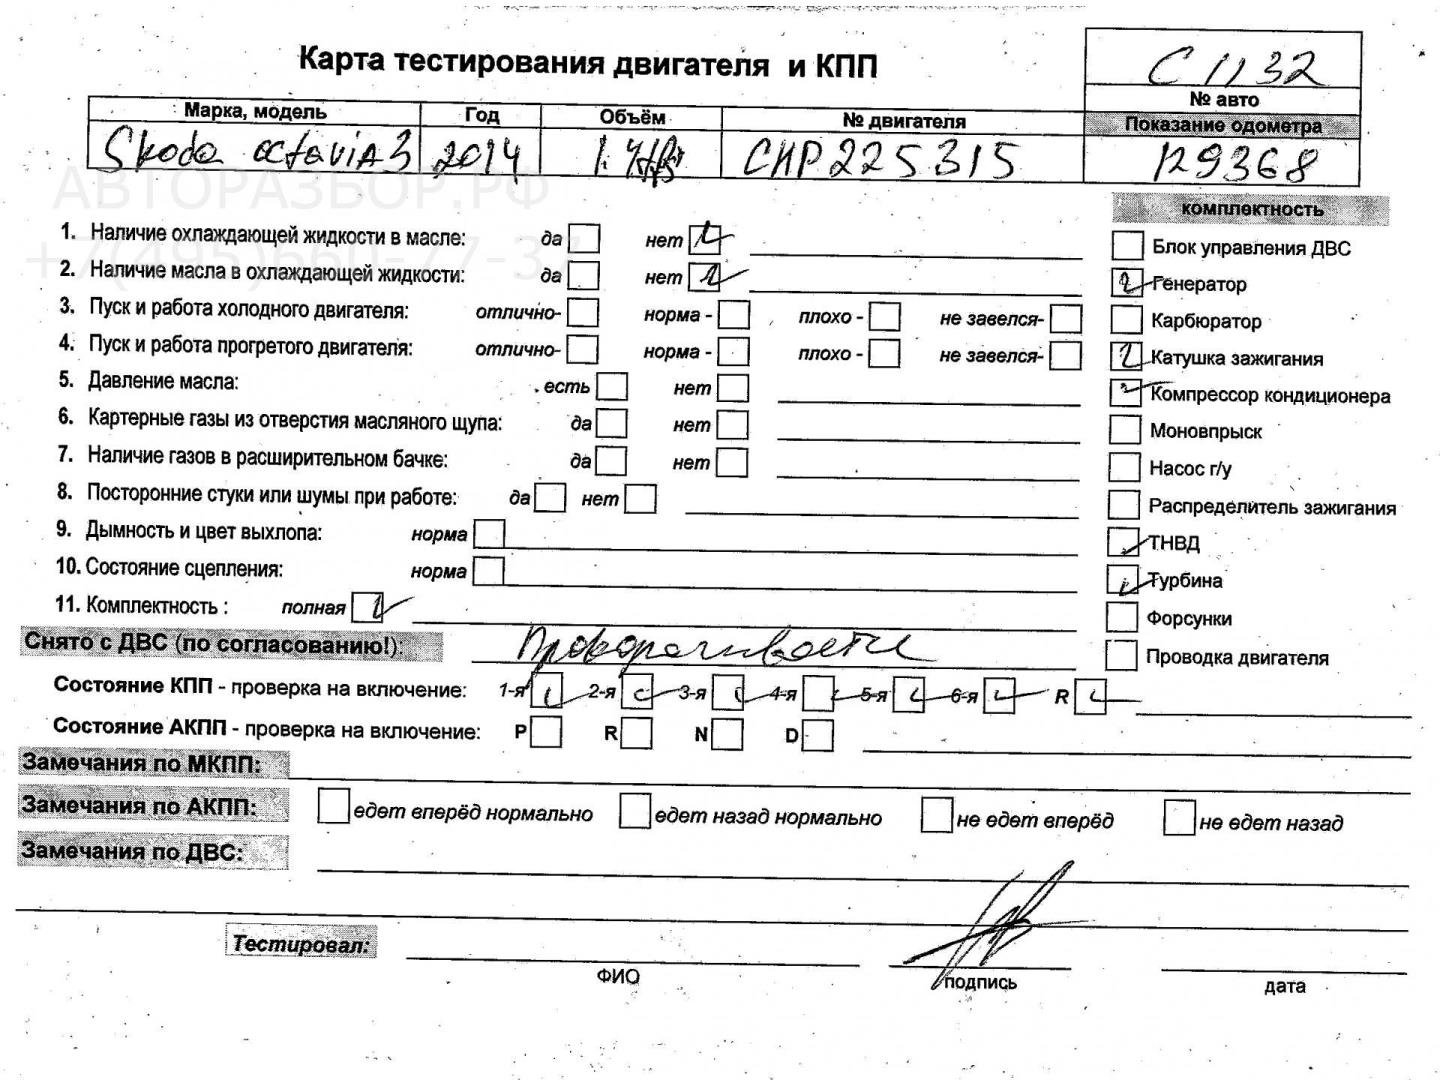 Карта тестирования двигателя и КПП
С1132
№ авто
Марка, модель Год Объём № двигателя
Показание одометра
Skoda octaviA3 2014 1.4 CHP225315 129368
АВТОРАЗБОР.РФ
+7(495)660-77-37
комплектность
1. Наличие охлаждающей жидкости в масле: да нет
Блок управления ДВС
2. Наличие масла в охлаждающей жидкости: да нет
Генератор
3. Пуск и работа холодного двигателя: отлично- норма - плохо - не завелся-
Карбюратор
4. Пуск и работа прогретого двигателя: отлично- норма - плохо - не завелся-
Катушка зажигания
5. Давление масла: есть нет
Компрессор кондиционера
6. Картерные газы из отверстия масляного щупа: да нет
Моновпрыск
7. Наличие газов в расширительном бачке: да нет
Насос г/у
8. Посторонние стуки или шумы при работе: да нет
Распределитель зажигания
9. Дымность и цвет выхлопа: норма
ТНВД
10. Состояние сцепления: норма
Турбина
11. Комплектность : полная
Форсунки
Снято с ДВС (по согласованию!):
Проводка двигателя
Состояние КПП - проверка на включение: 1-я 2-я 3-я 4-я 5-я 6-я R
Состояние АКПП - проверка на включение: P R N D
Замечания по МКПП:
Замечания по АКПП: едет вперёд нормально едет назад нормально не едет вперёд не едет назад
Замечания по ДВС:
Тестировал:
ФИО подпись дата